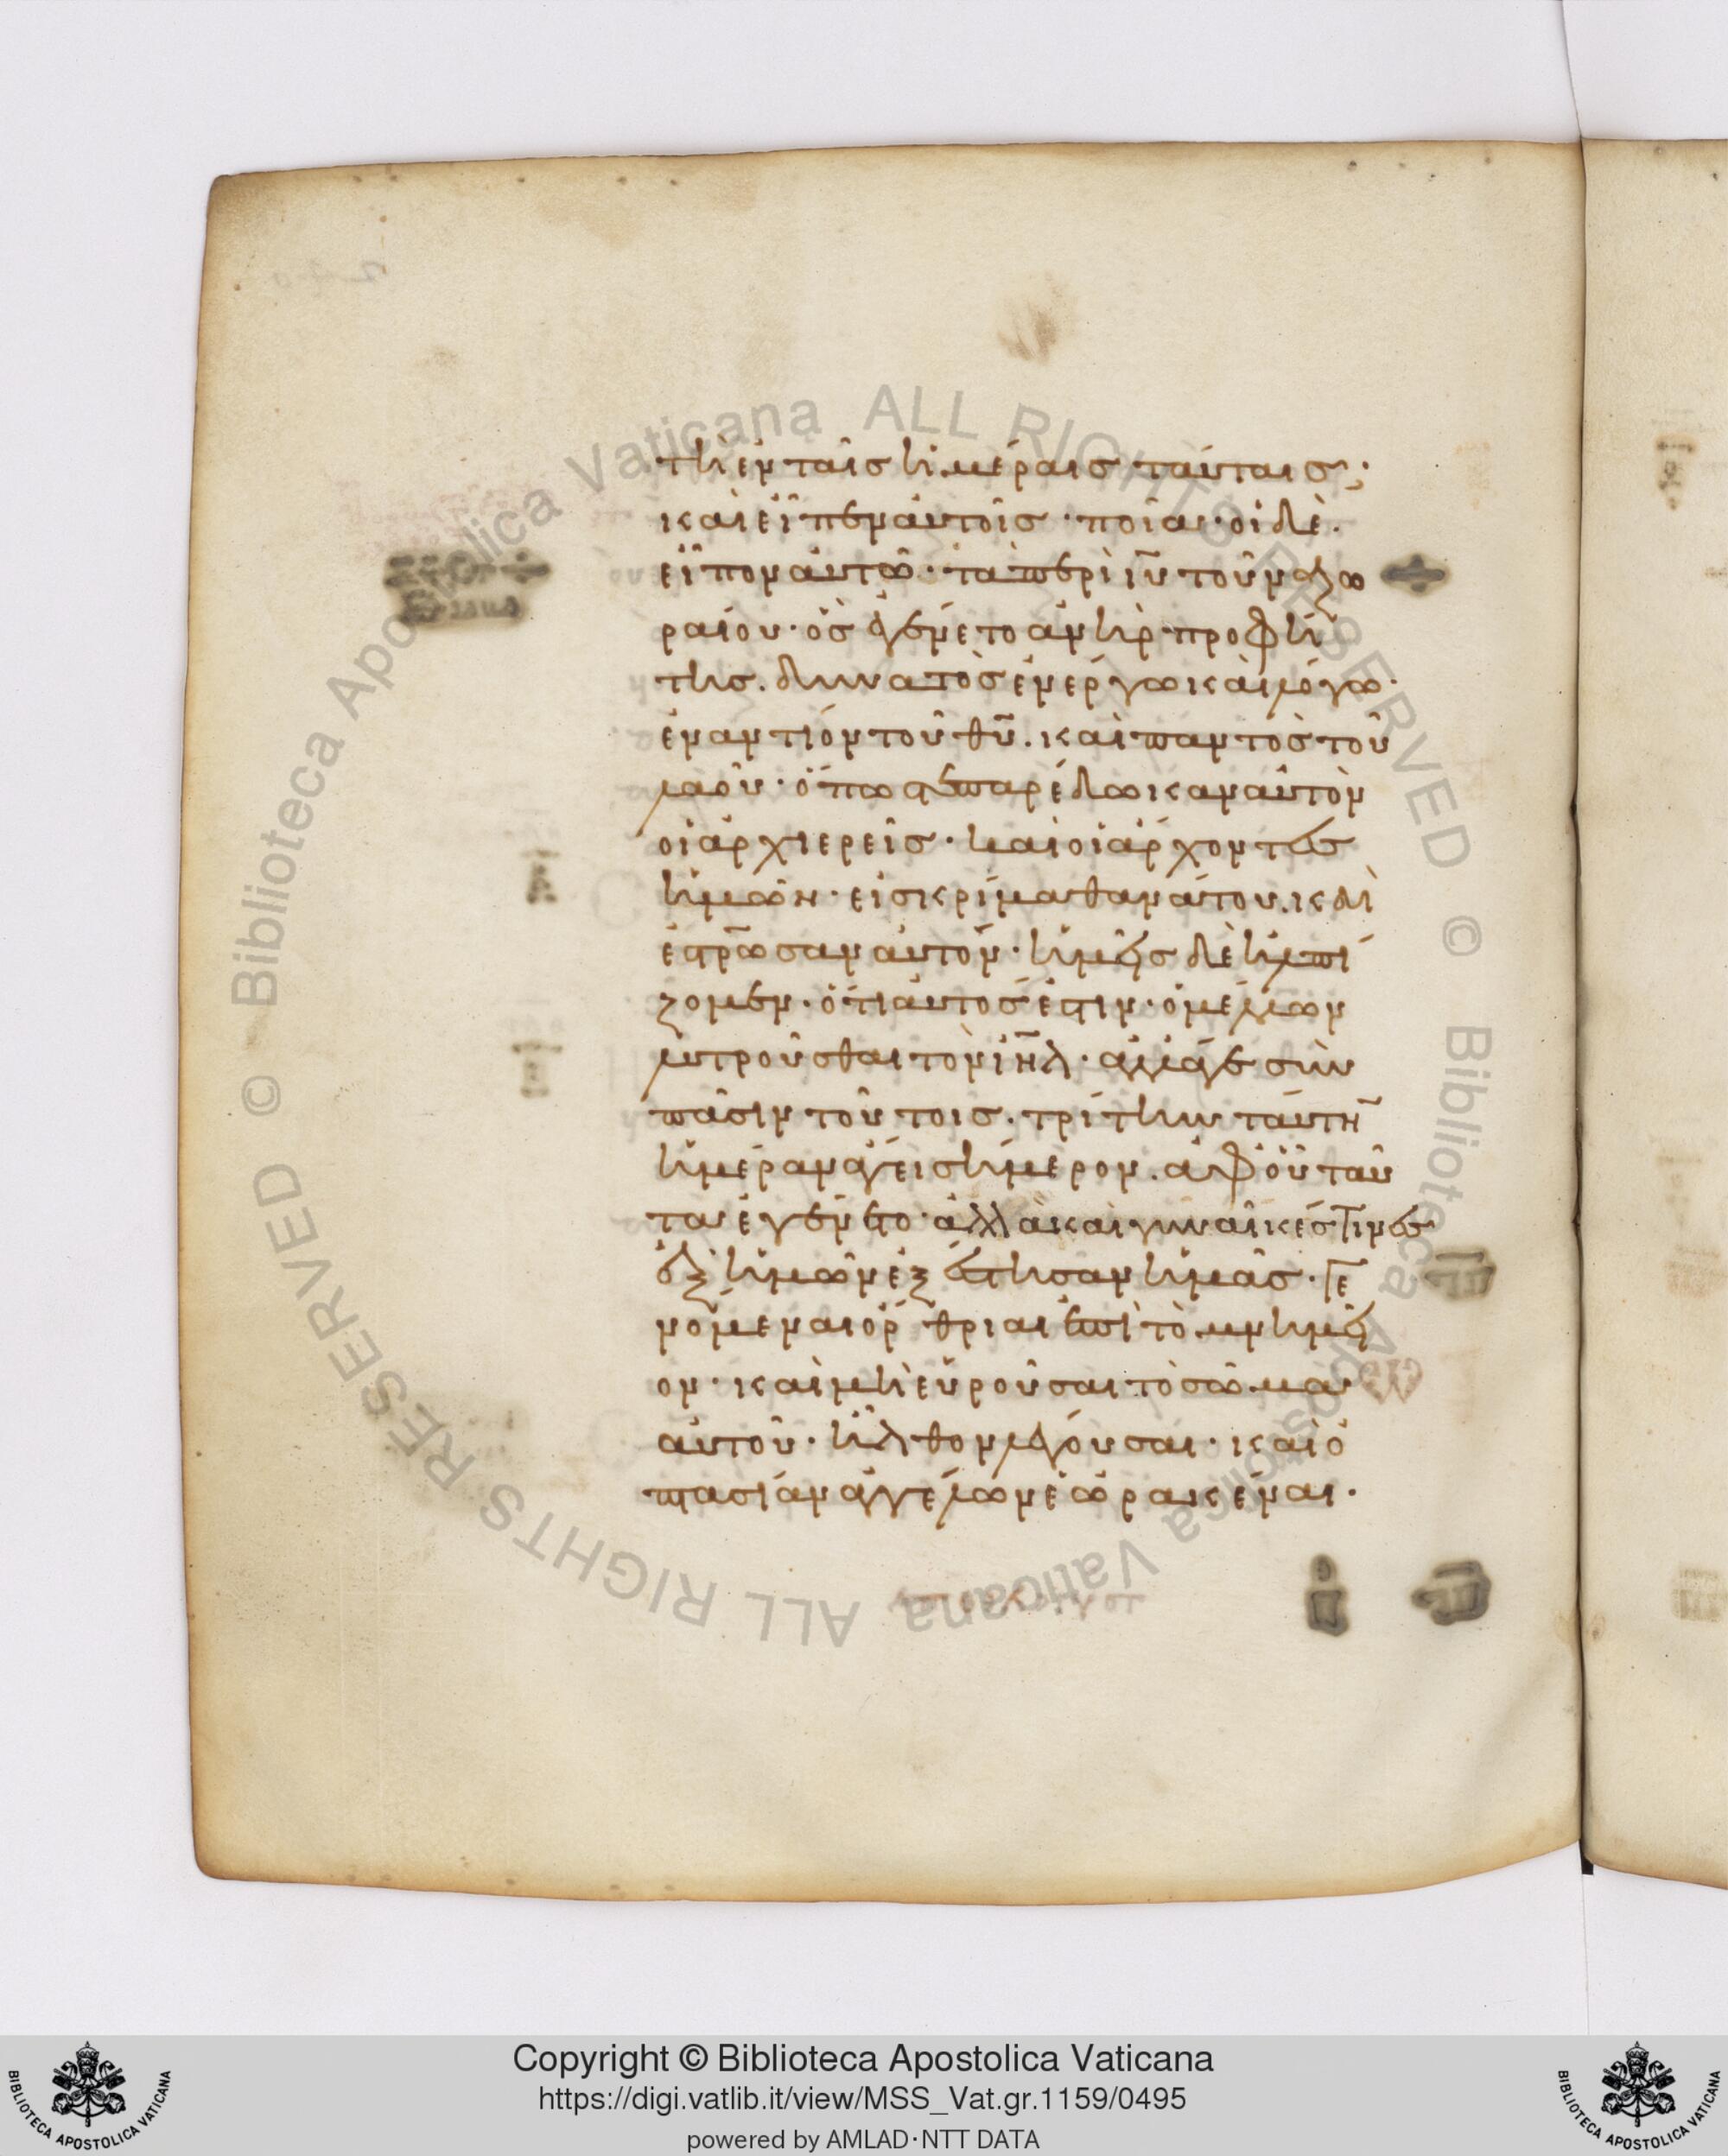 τῆ ἐν ταῖς ἡμέραις ταύταις;
καὶ εἶπεν αὐτοῖς· ποῖα· οἱ δὲ.
εἶπον αὐτῶ· τὰ περὶ ιυ τοῦ ναζω
ραίου· ὃς ἐγένετο ἀνὴρ προφή
της. δυνατὸς ἐν ἔργω καὶ λόγω·
ἐναντίον τοῦ θυ. καὶ παντὸς τοῦ
λαοῦ· ὅπως παρέδωκαν αὐτὸν
οἱ ἀρχιερεῖς· καὶ οἱ ἄρχοντες
ἡμῶν· εἰς κρίμα θανάτου. καὶ
ἐστρωσαν αὐτόν· ἡμεῖς δὲ ἠλπί
ζομεν· ὅτι αὐτός ἐστιν· ὁ μέλλων
λυτροῦσθαι τὸν ιηλ· ἀλλάγε σὺν
πᾶσιν τούτοις. τρίτην ταύτη
ἡμέραν ἄγει σήμερον. ἀφ' οὗ ταῦ
τα ἐγένετο· ἀλλὰ καὶ γυναῖκές τινες
ἐξ ἡμῶν ἐξέστησαν ἡμᾶς· γε
νόμεναι ὄρθριαι ἐπὶ τὸ μνημεῖ
ον· καὶ μὴ εὑροῦσαι τὸ σῶμα
αὐτοῦ· ἦλθον λέγουσαι· καὶ ὀ
πτασίαν ἀγγέλων ἑωρακέναι·
Copyright © Biblioteca Apostolica Vaticana
https://digi.vatlib.it/view/MSS_Vat.gr.1159/0495
powered by AMLAD·NTT DATA
© Biblioteca Apostolica Vaticana ALL RIGHTS RESERVED
© Biblioteca Apostolica Vaticana ALL RIGHTS RESERVED
BIBLIOTECA APOSTOLICA VATICANA
BIBLIOTECA APOSTOLICA VATICANA